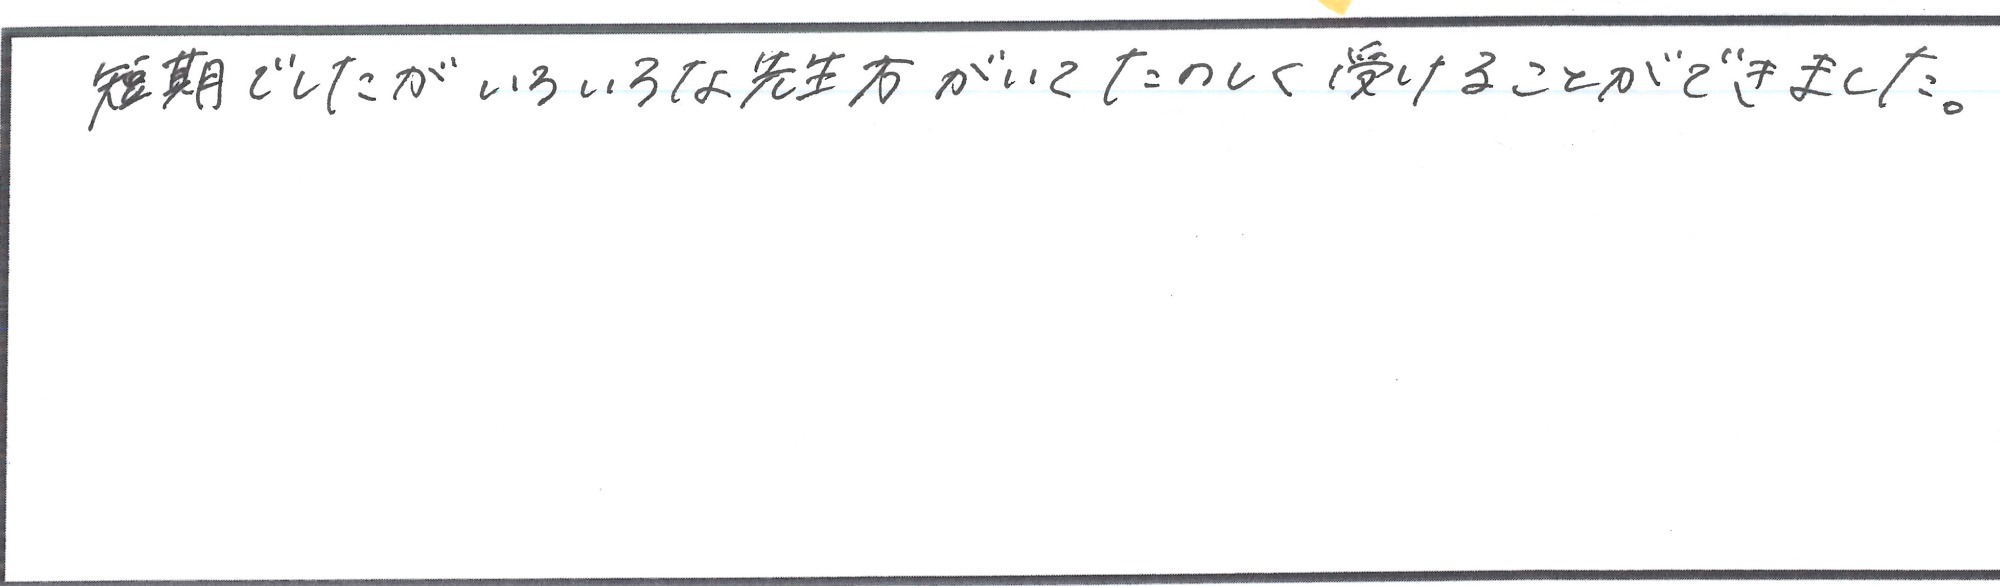 短期でしたがいろいろな先生方がいてたのしく受けることができました。